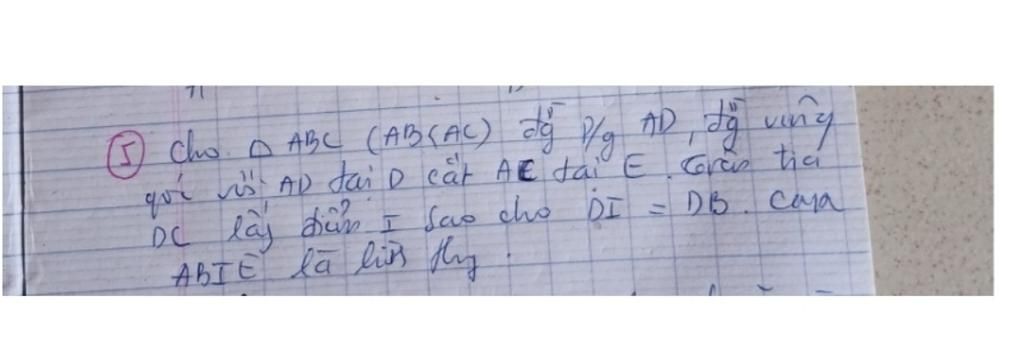 (5) Cho Δ ABC (AB<AC) đg p/g AD, đg vuông
góc với AD tại D cắt AC tại E. Trên tia
DC lấy điểm I sao cho DI = DB. Cm
ABIE là hình thg.